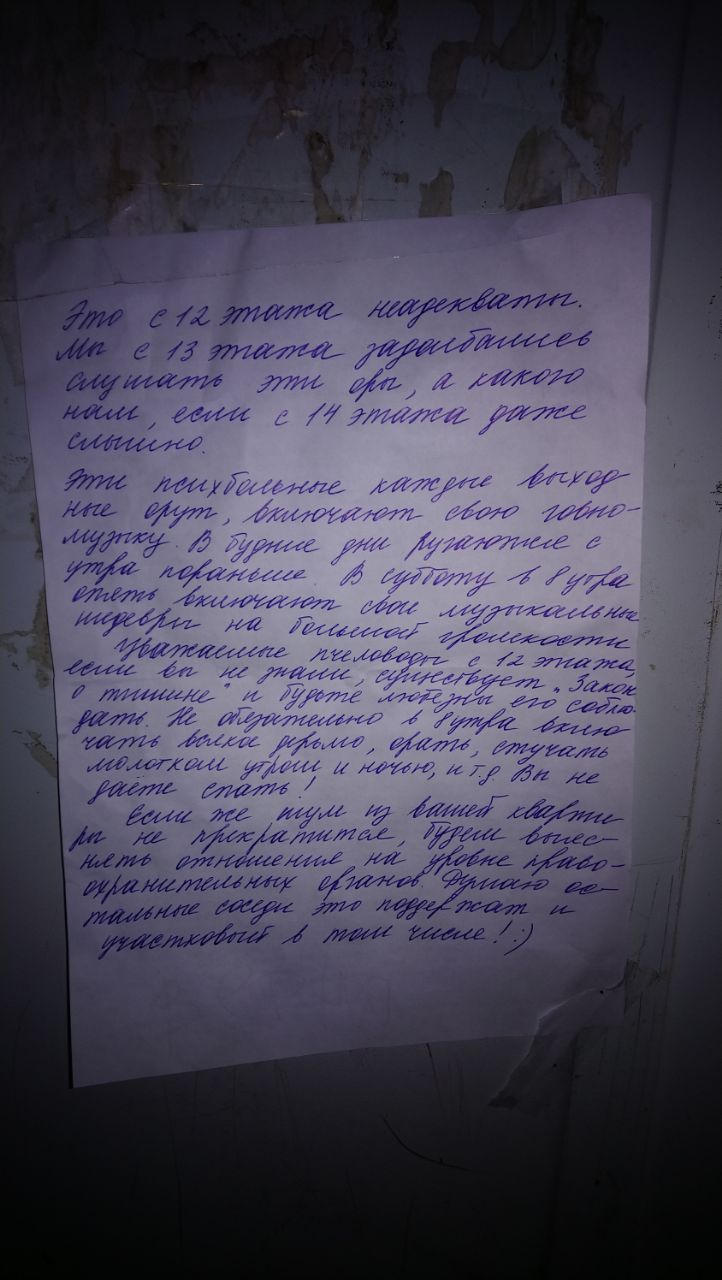 Это с 12 этажа неадекваты.
Мы с 13 этажа задолбались
слушать эти оры, а каково
нам, если с 14 этажа даже
слышно.
Эти психбольные каждые выход
ные орут, включают свою говно-
музыку. В будние дни ругаются с
утра пораньше. В субботу в 8 утра
опять включают свои музыкальные
шедевры на большой громкости
Уважаемые пчеловоды с 12 этажа,
если вы не знали, существует "Закон
о тишине" и будьте любезны его соблю-
дать. Не обязательно в 8 утра вклю
чать всякое дерьмо, орать, стучать
молотком утром и ночью, и т.д. Вы не
даёте спать!
Если же шум из вашей кварти
ры не прекратится, будем выяс-
нять отношение на уровне право-
охранительных органов. Думаю ос-
тальные соседи это поддержат и
участковый в том числе! :)